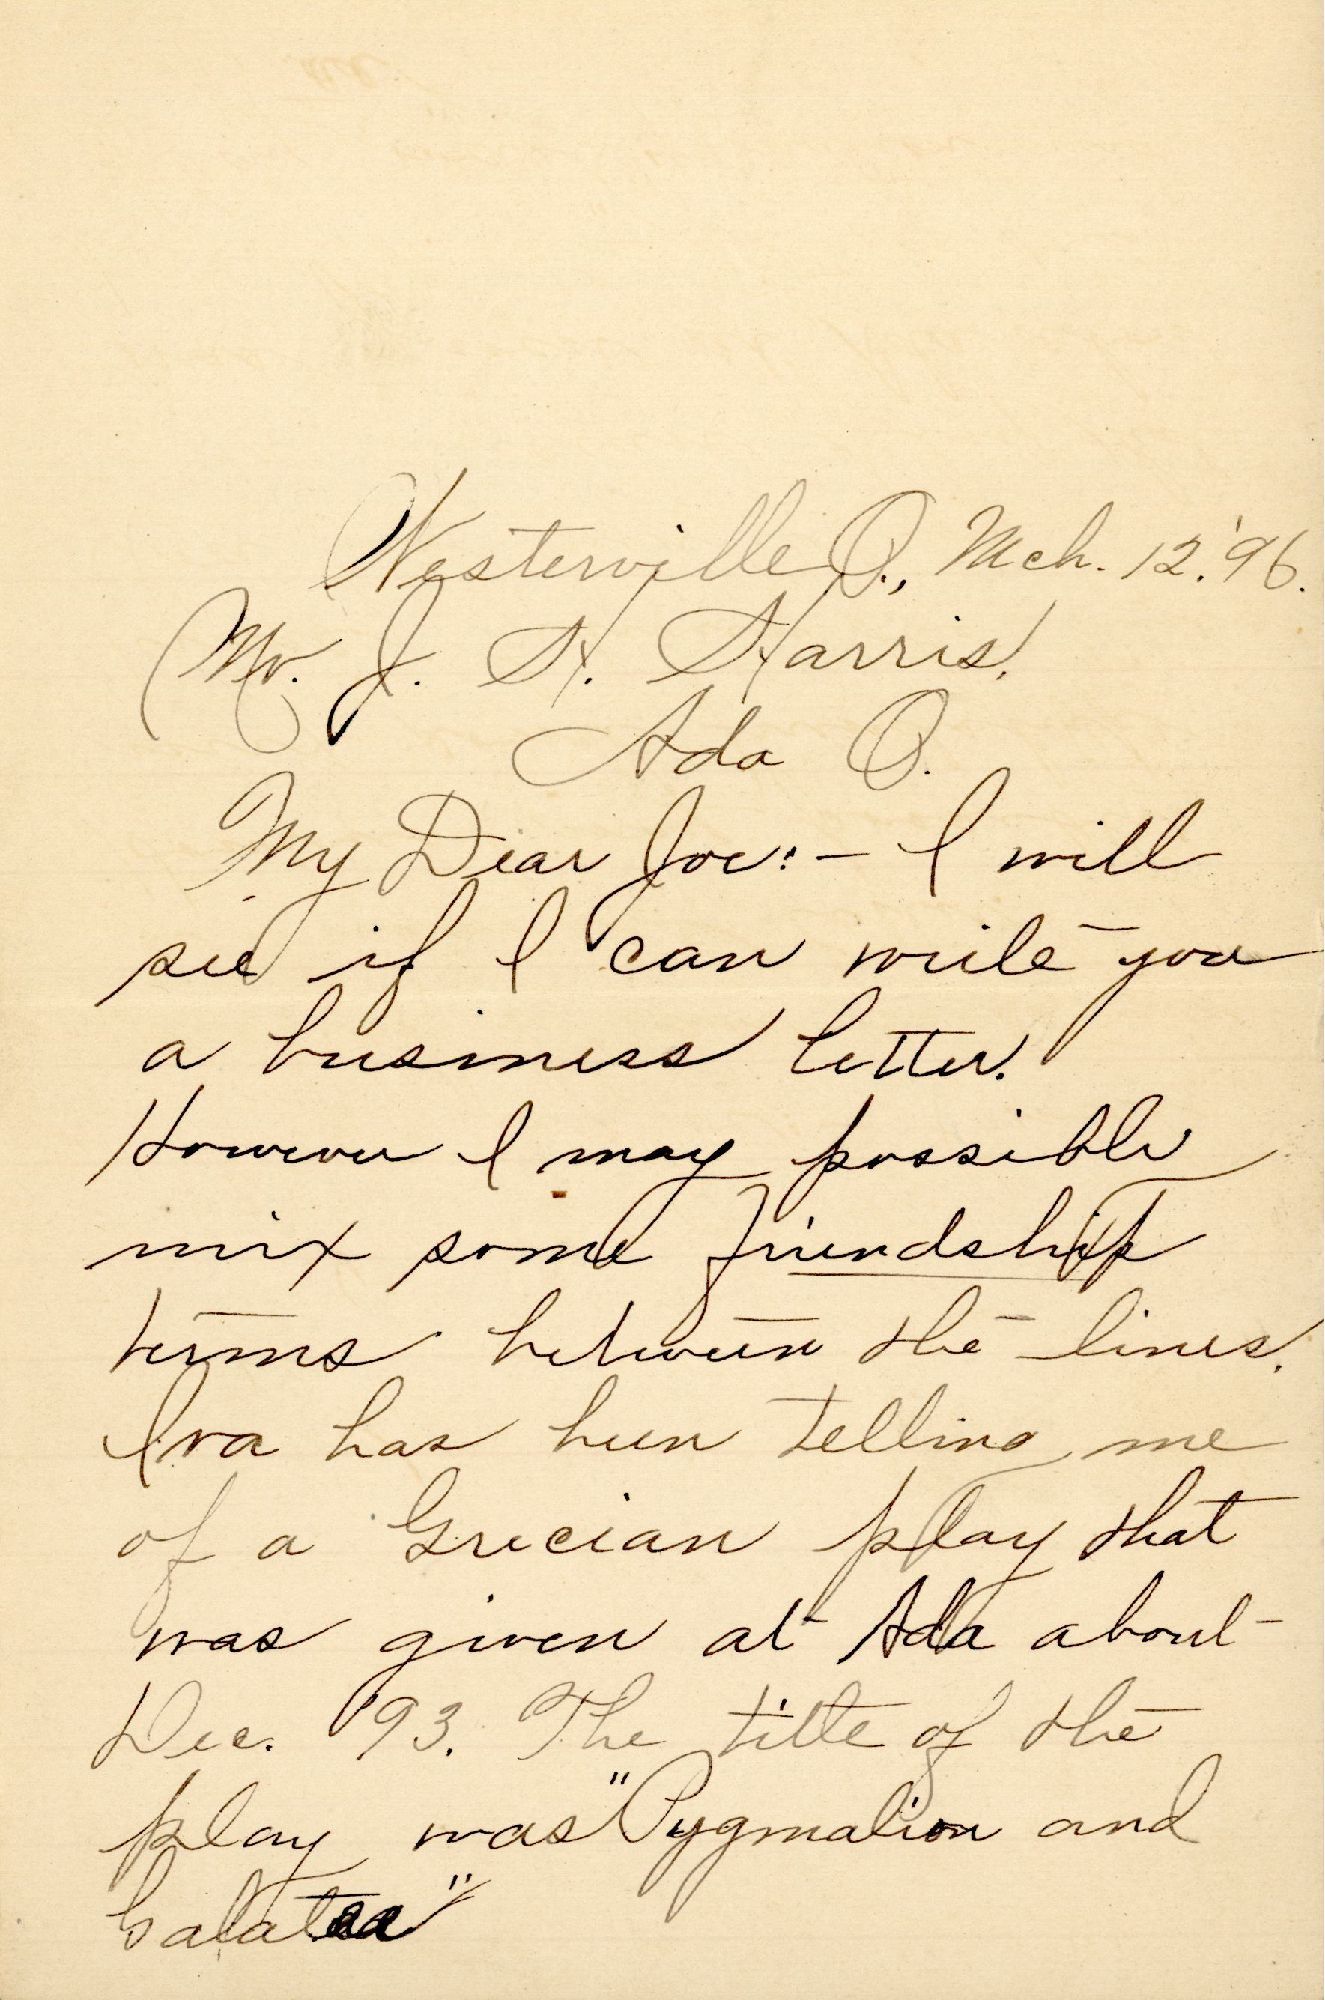 Westerville O., Mch. 12. '96.
Mr. J. H. Harris,
Ada O.
My Dear Joe:- I will
see if I can write you
a business letter.
However I may possible
mix some friendship
terms between the lines.
Iva has been telling me
of a Grecian play that
was given at Ada about
Dec. '93. The title of the
play was "Pygmalion and
Galatea"